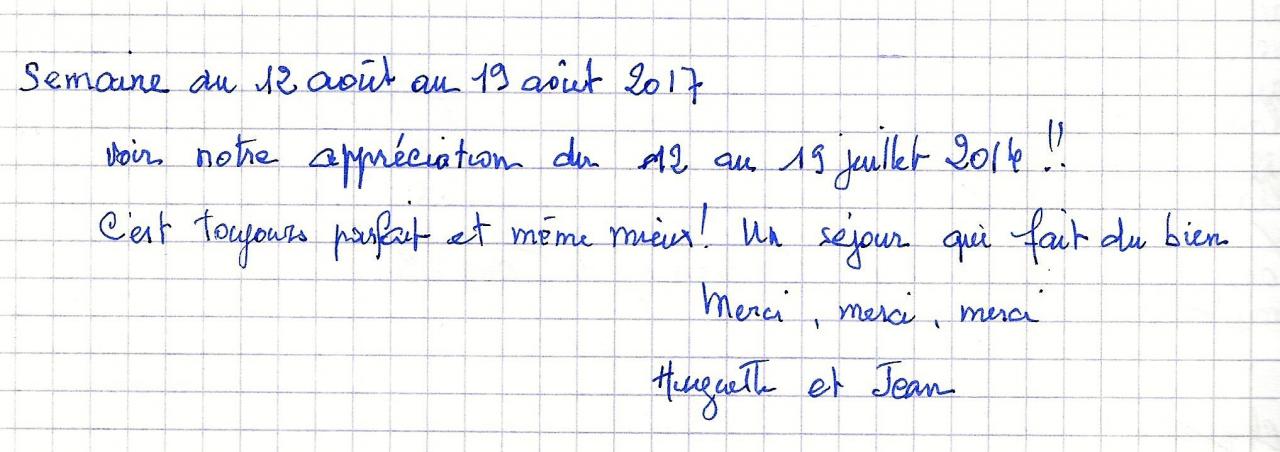 Semaine du 12 août au 19 août 2017
voir notre appréciation du 12 au 19 juillet 2014 !!
C'est toujours parfait et même mieux! Un séjour qui fait du bien
Merci, merci, merci
Huguette et Jean